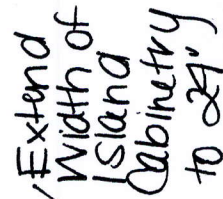 Extend
Width of
Island
Cabinetry
to 29"